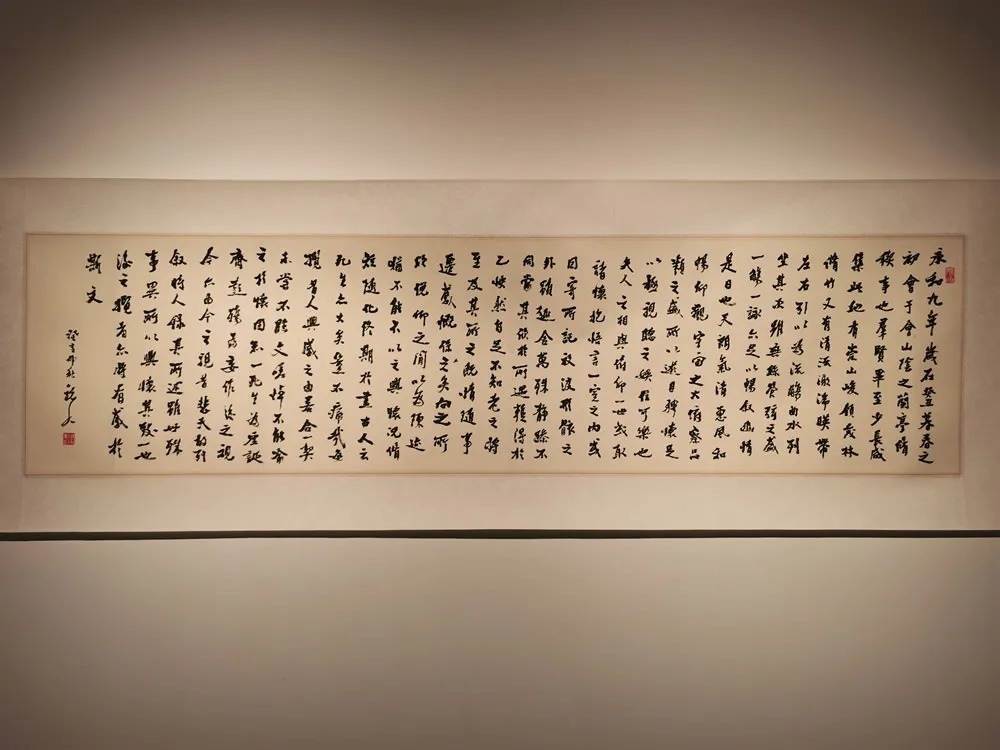 永和九年歲在癸丑暮春之
初會于會山陰之蘭亭脩
禊事也羣賢畢至少長咸
集此地有崇山峻領茂林
脩竹又有清流激湍暎帶
左右引以為流觴曲水列
坐其次雖無絲管弦之盛
一觴一詠亦足以暢叙幽情
是日也天朗氣清惠風和
暢仰觀宇宙之大俯察品
類之盛所以遊目騁懷足
以極視聽之娛信可樂也
夫人之相與俯仰一世或取
諸懷抱悟言一室之內或
因寄所託放浪形骸之
外雖趣舍萬殊靜躁不
同當其欣於所遇蹔得於
己怏然自足不知老之將
至及其所之既情隨事
遷感慨係之矣向之所
欣俛仰之閒以為陳迹
猶不能不以之興懷況脩
短隨化終期於盡古人云
死生亦大矣豈不痛哉每
攬昔人興感之由若合一契
未嘗不臨文嗟悼不能喻
之於懷固知一死生為虛誕
齊彭殤為妄作後之視
今亦由今之視昔悲夫故列
叙時人錄其所述雖世殊
事異所以興懷其致一也
後之攬者亦將有感於
斯文